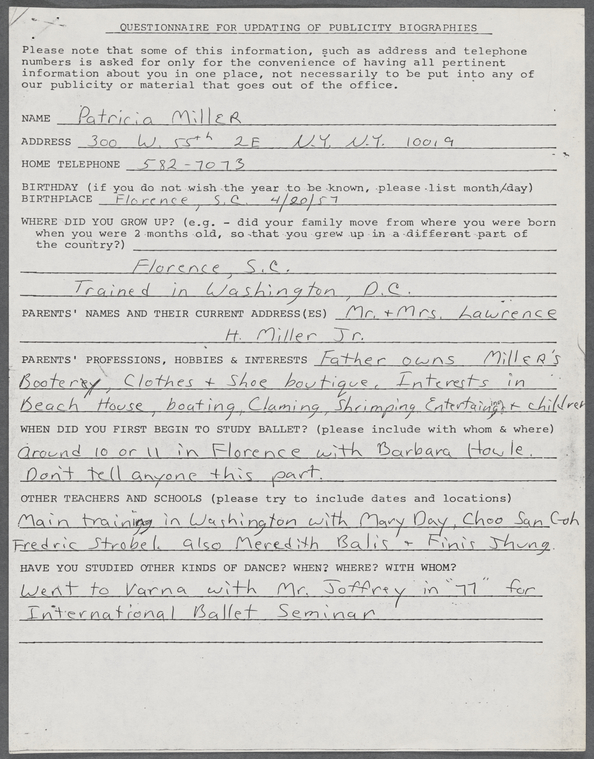 QUESTIONNAIRE FOR UPDATING OF PUBLICITY BIOGRAPHIES
Please note that some of this information, such as address and telephone
numbers is asked for only for the convenience of having all pertinent
information about you in one place, not necessarily to be put into any of
our publicity or material that goes out of the office.
NAME Patricia Miller
ADDRESS 300 W. 55th 2E N.Y. N.Y. 10019
HOME TELEPHONE 582-7073
BIRTHDAY (if you do not wish the year to be known, please list month/day)
BIRTHPLACE Florence, S.C. 4/20/57
WHERE DID YOU GROW UP? (e.g. - did your family move from where you were born
when you were 2 months old, so that you grew up in a different part of
the country?)
Florence, S.C.
Trained in Washington, D.C.
PARENTS' NAMES AND THEIR CURRENT ADDRESS(ES) Mr. + Mrs. Lawrence
H. Miller Jr.
PARENTS' PROFESSIONS, HOBBIES & INTERESTS Father owns Miller's
Booterey, Clothes + Shoe boutique. Interests in
Beach House, boating, Claming, Shrimping, Entertaining + children
WHEN DID YOU FIRST BEGIN TO STUDY BALLET? (please include with whom & where)
around 10 or 11 in Florence with Barbara Howle.
Don't tell anyone this part.
OTHER TEACHERS AND SCHOOLS (please try to include dates and locations)
Main training in Washington with Mary Day, Choo San Goh
Fredric Strobel. also Meredith Balis + Finis Jhung.
HAVE YOU STUDIED OTHER KINDS OF DANCE? WHEN? WHERE? WITH WHOM?
Went to Varna with Mr. Joffrey in "77" for
International Ballet Seminar